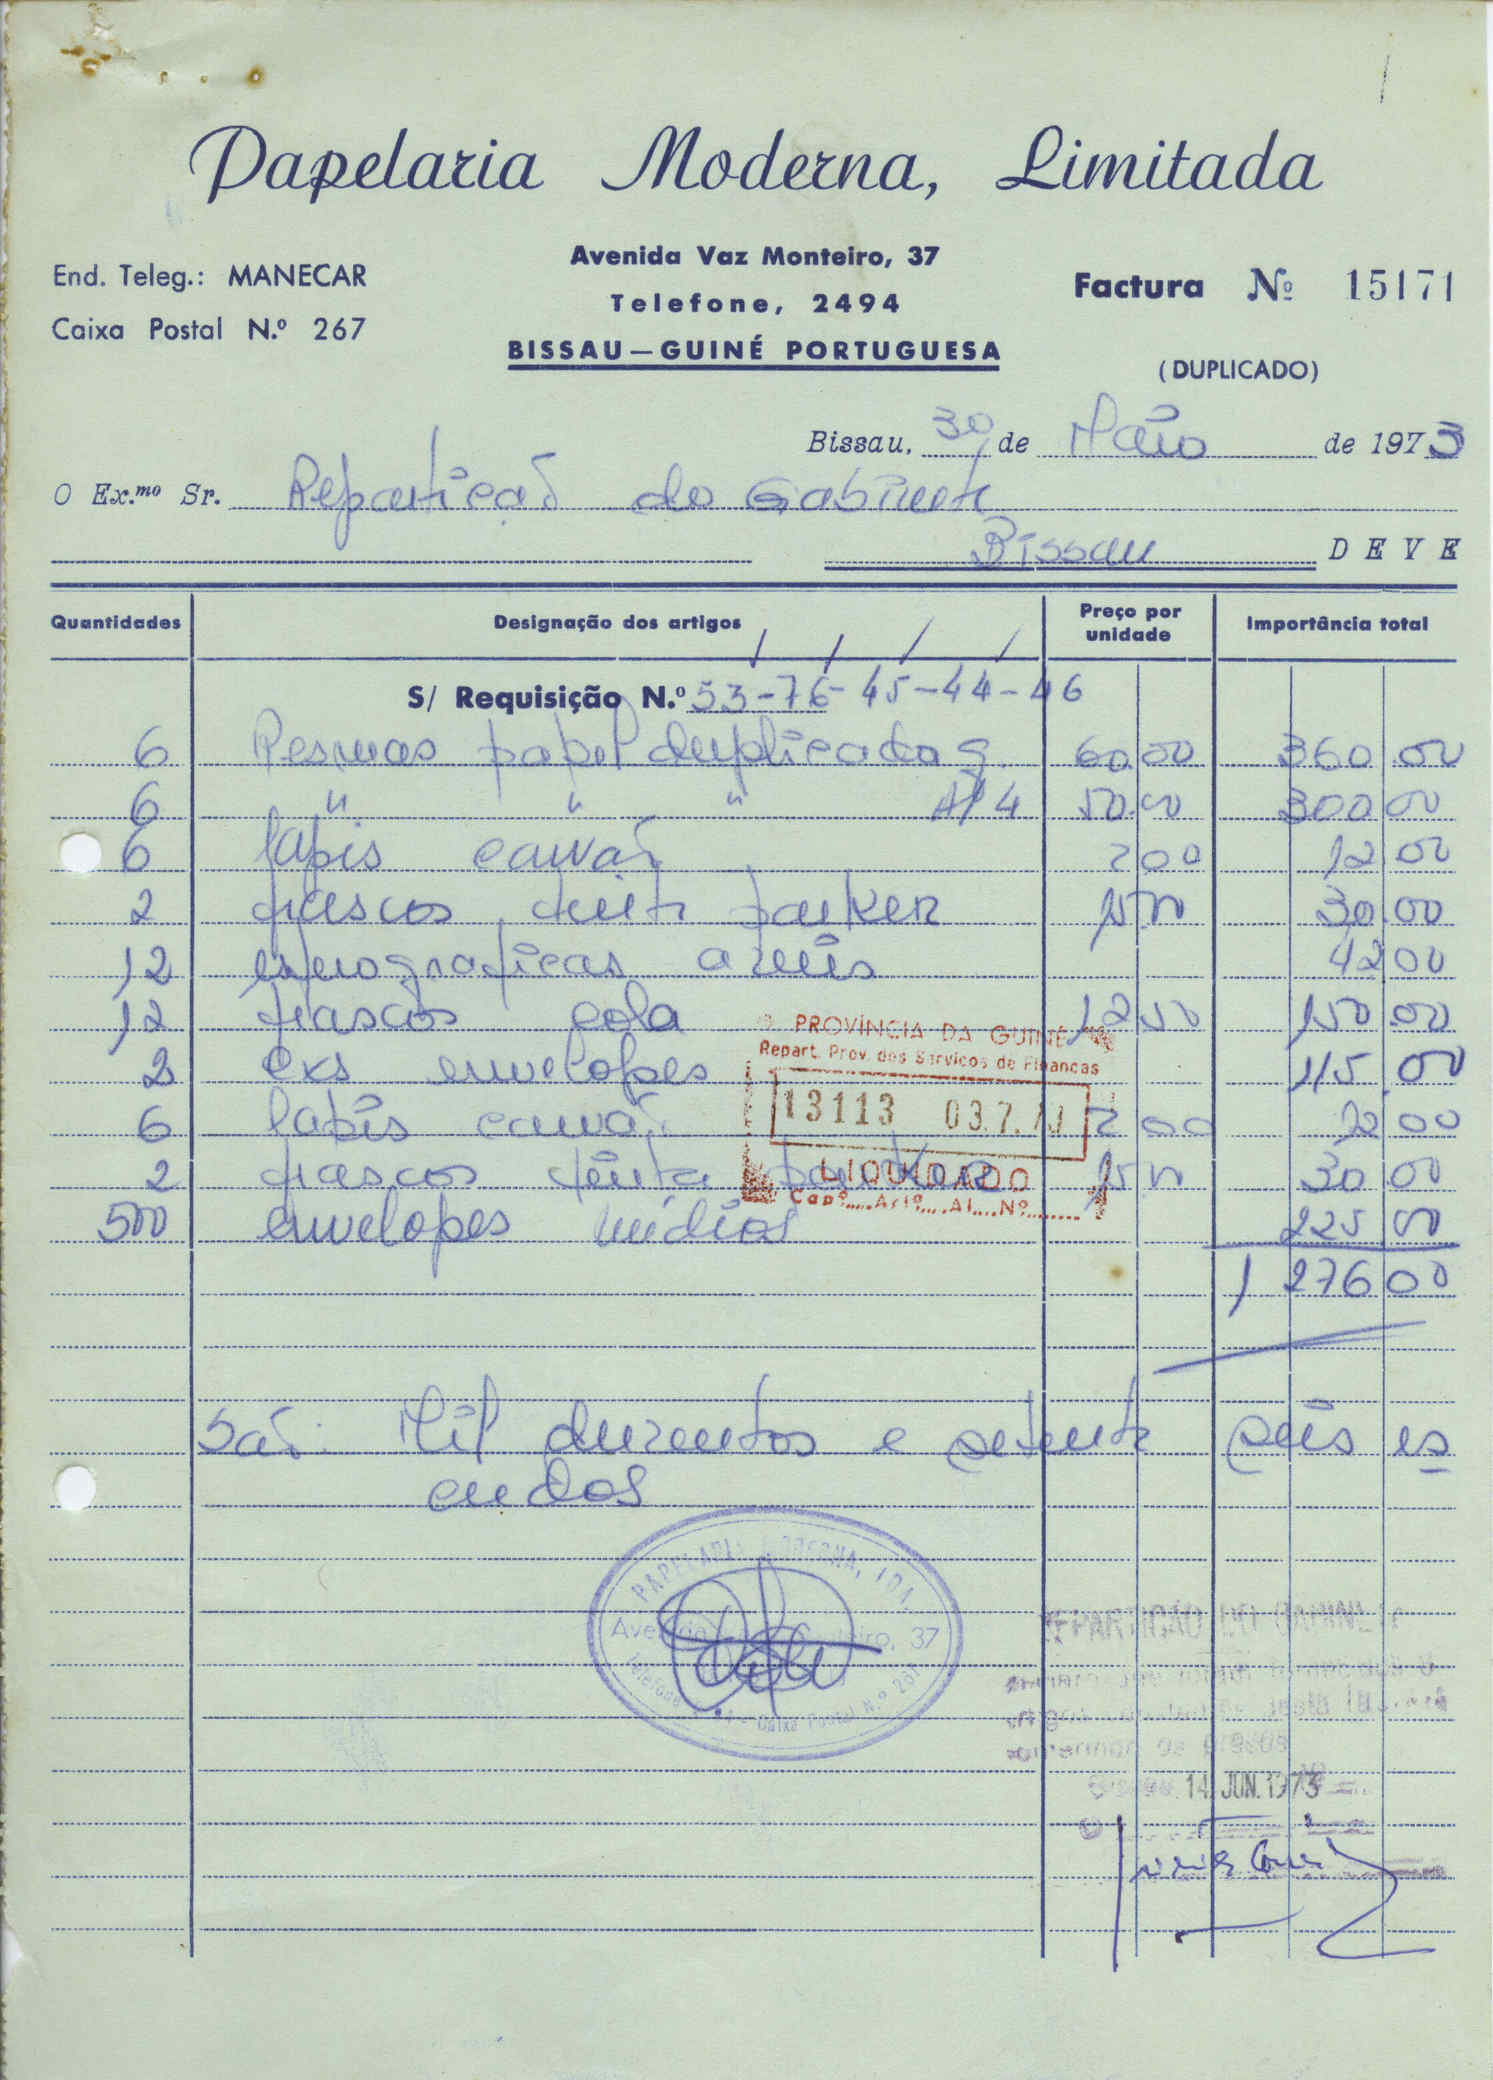 Papelaria Moderna, Limitada
End. Teleg.: MANECAR
Caixa Postal N.º 267
Avenida Vaz Monteiro, 37
Telefone, 2494
BISSAU — GUINÉ PORTUGUESA
Factura Nº 15171
(DUPLICADO)
Bissau, 30 de Maio de 1973
O Ex.mo Sr. Repartição do Gabinete
Bissau DEVE
Quantidades Designação dos artigos Preço por unidade Importância total
S/ Requisição N.º 53-76-45-44-46
6 Resmas papel duplicador 60.00 360.00
6 " " " A/4 50.00 300.00
6 lapis carvão 2 00 12 00
2 frascos tinta parker 15 00 30.00
12 esferograficas azuis 42 00
12 frascos cola 12 50 150.00
2 cxs envelopes 115.00
6 lapis carvão 2 00 12 00
2 frascos tinta parker 15 00 30 00
500 envelopes médios 225 00
1 276 00
PROVÍNCIA DA GUINÉ
Repart. Prov. dos Serviços de Finanças
13113 03.7.73
LIQUIDADO
Capº.....Artº....Al....Nº........
São: Mil duzentos e setenta seis es
cudos
PAPELARIA MODERNA, LDA.
Avenida Monteiro, 37
Telefone - Caixa Postal N.º 267
REPARTIÇÃO DO GABINETE
os preços
Bissau 14. JUN. 1973
O